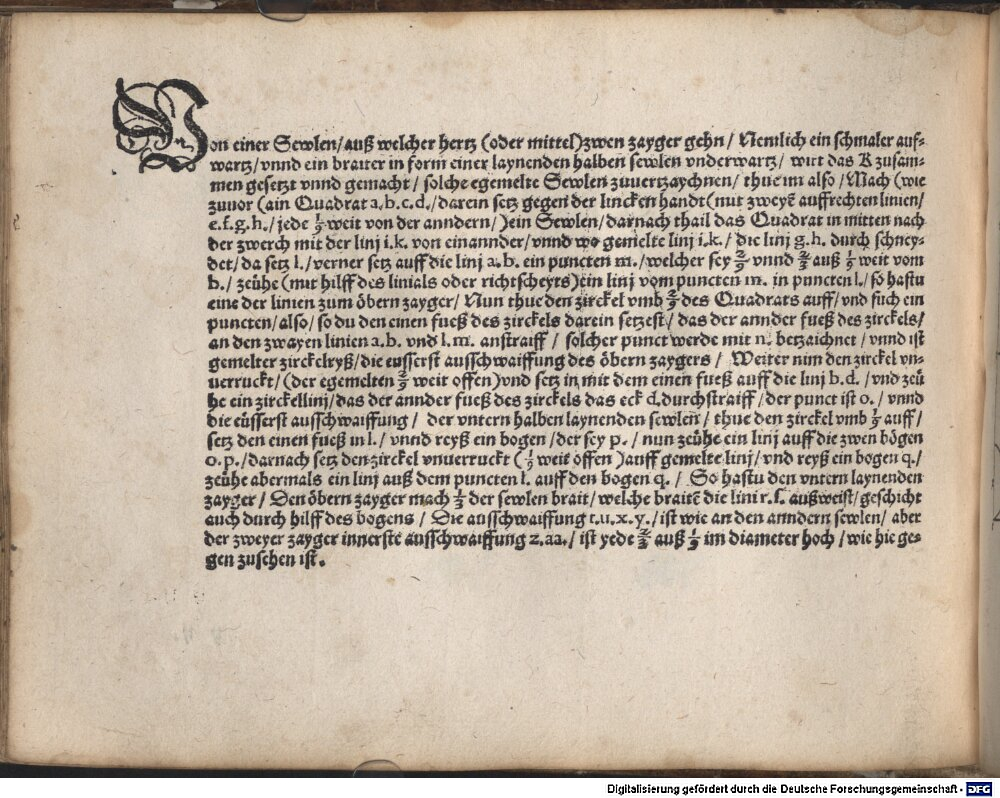 Von einer Sewlen/ auß welcher hertz (oder mittel) zwen zayger gehn/ Nemlich ein schmaler auf-
wartz/ vnnd ein braiter in form einer laynenden halben sewlen vnderwartz/ wirt das K zusam-
men gesetzt vnnd gemacht/ solche egemelte Sewlen zuuertzaychnen/ thue im also/ Mach (wie
zuuor (ain Quadrat a.b.c.d./ darein setz gegen der lincken handt (mit zweyẽ auffrechten linien/
e.f.g.h./ jede 1/9 weit von der anndern/) ein Sewlen/ darnach thail das Quadrat in mitten nach
der zwerch mit der linj i.k. von einannder/ vnnd wo gemelte linj i.k./ die linj g.h. durch schney-
det/ da setz l./ verner setz auff die linj a.b. ein puncten m./ welcher sey 2/9 vnnd 2/3 auß 1/9 weit vom
b./ zeühe (mit hilff des linials oder richtscheyts) ein linj vom puncten m. in puncten l./ so hastu
eine der linien zum öbern zayger/ Nun thue den zirckel vmb 2/9 des Quadrats auff/ vnd such ein
puncten/ also/ so du den einen fueß des zirckels darein setzest/ das der annder fueß des zirckels/
an den zwayen linien a.b. vnd l.m. anstraiff/ solcher punct werde mit n. betzaichnet/ vnnd ist
gemelter zirckelryß/ die eusserst ausschwaiffung des öbern zaygers/ Weiter nim den zirckel vn-
uerruckt/ (der egemelten 2/9 weit offen) vnd setz in mit dem einen fueß auff die linj b.d./ vnd zeü
he ein zirckellinj/ das der annder fueß des zirckels das eck d. durchstraiff/ der punct ist o./ vnnd
die eüsserst ausschwaiffung/ der vntern halben laynenden sewlen/ thue den zirckel vmb 1/9 auff/
setz den einen fueß in l./ vnnd reyß ein bogen/ der sey p./ nun zeühe ein linj auff die zwen bögen
o.p./ darnach setz den zirckel vnuerruckt (1/9 weit offen) auff gemelte linj/ vnd reyß ein bogen q./
zeühe abermals ein linj auß dem puncten l. auff den bogen q./ So hastu den vntern laynenden
zayger/ Den öbern zayger mach 1/3 der sewlen brait/ welche braitẽ die lini r.s. außweist/ geschicht
auch durch hilff des bogens/ Die ausschwaiffung t.u.x.y./ ist wie an den anndern sewlen/ aber
der zweyer zayger innerste ausschwaiffung z.aa./ ist yede 2/3 auß 1/9 im diameter hoch/ wie hie ge-
gen zusehen ist.
Digitalisierung gefördert durch die Deutsche Forschungsgemeinschaft - DFG